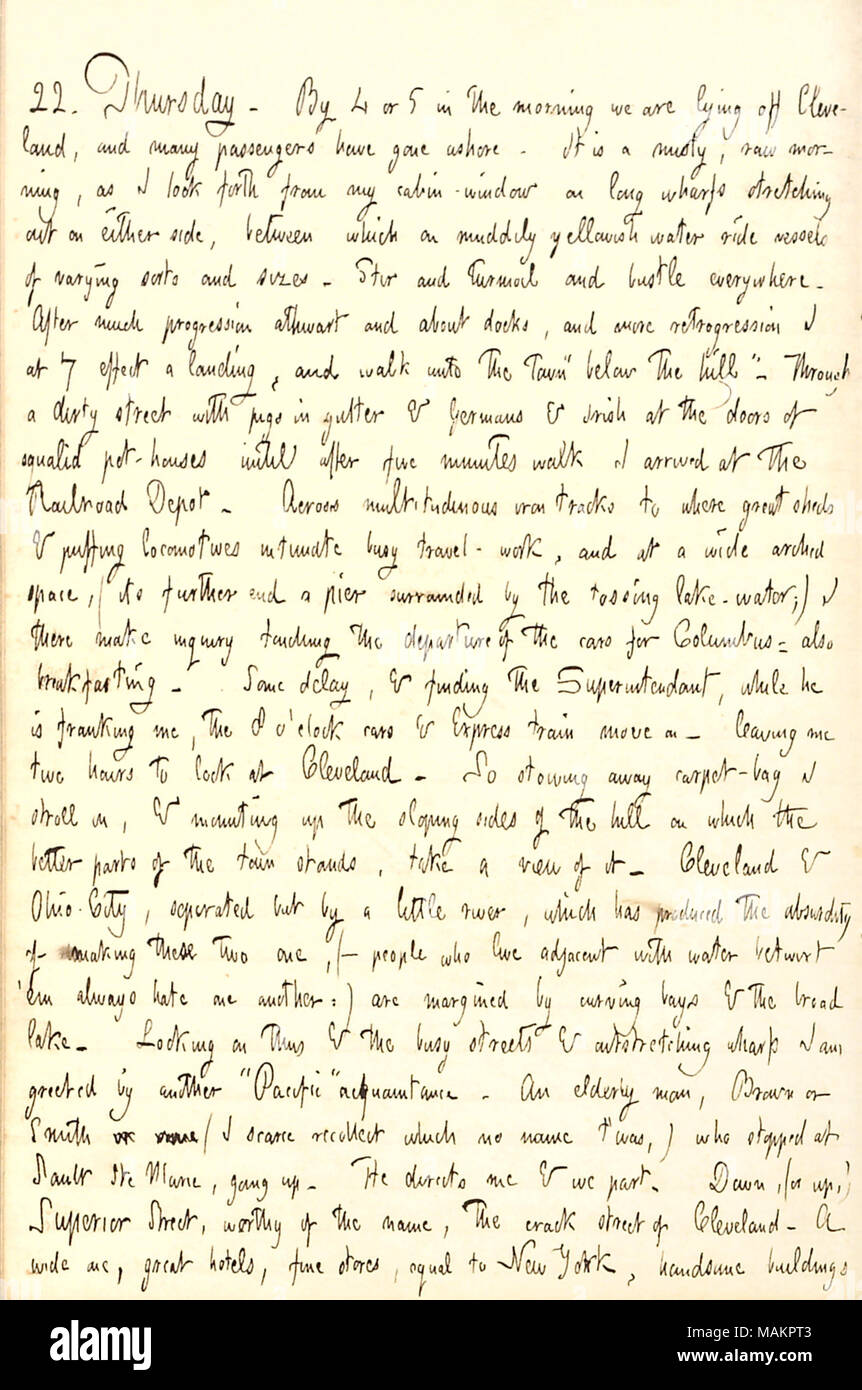 22. Thursday - By 4 or 5 in the morning we are lying off Cleve-
land, and many passengers have gone ashore - It is a misty, raw mor-
ning, as I look forth from my cabin-window on long wharfs stretching
out on either side, between which on muddily yellowish water ride vessels
of varying sorts and sizes - Stir and turmoil and bustle everywhere -
After much progression athwart and about docks, and more retrogression I
at 7 effect a landing, and walk unto the Town "below the hill" - Through
a dirty street with pigs in gutter & Germans & Irish at the doors of
squalid pot-houses until after five minutes walk I arrived at the
Railroad Depot - Across multitudinous iron tracks to where great sheds
& puffing locomotives intimate busy travel-work, and at a wide arched
space, (its further end a pier surrounded by the tossing lake-water;) I
there make inquiry touching the departure of the cars for Columbus = also
breakfasting - Some delay, & finding the Superintendant, while he
is franking me, the 8 o'clock cars & Express train move on - leaving me
two hours to look at Cleveland - So stowing away carpet-bag I
stroll on, & mounting up the sloping sides of the hill on which the
better parts of the town stands, take a view of it - Cleveland &
Ohio-City, seperated but by a little river, which has produced the absurdity
of making these two one, (- people who live adjacent with water betwixt
'em always hate one another:) are margined by curving bays & the broad
lake - Looking on this & the busy streets & outstretching wharfs I am
greeted by another "Pacific" acquaintance - An elderly man, Brown or
Smith (I scarce recollect which no name t'was,) who stopped at
Sault Ste Marie, going up - He directs me & we part. Down, (or up,)
Superior Street, worthy of the name, the crack street of Cleveland - A
wide one, great hotels, fine stores, equal to New York, handsome buildings
alamy
Image ID: MAKPT3
www.alamy.com